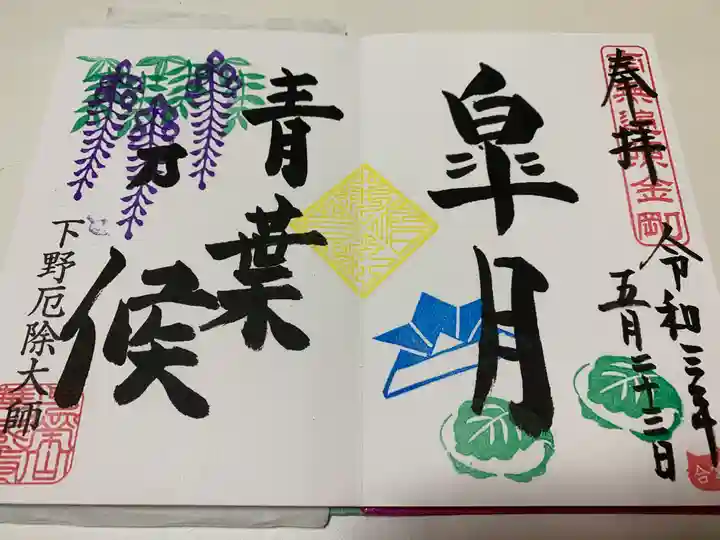 奉拝
令和三年
五月二十三日
皐月
青葉
乃
候
下野厄除大師